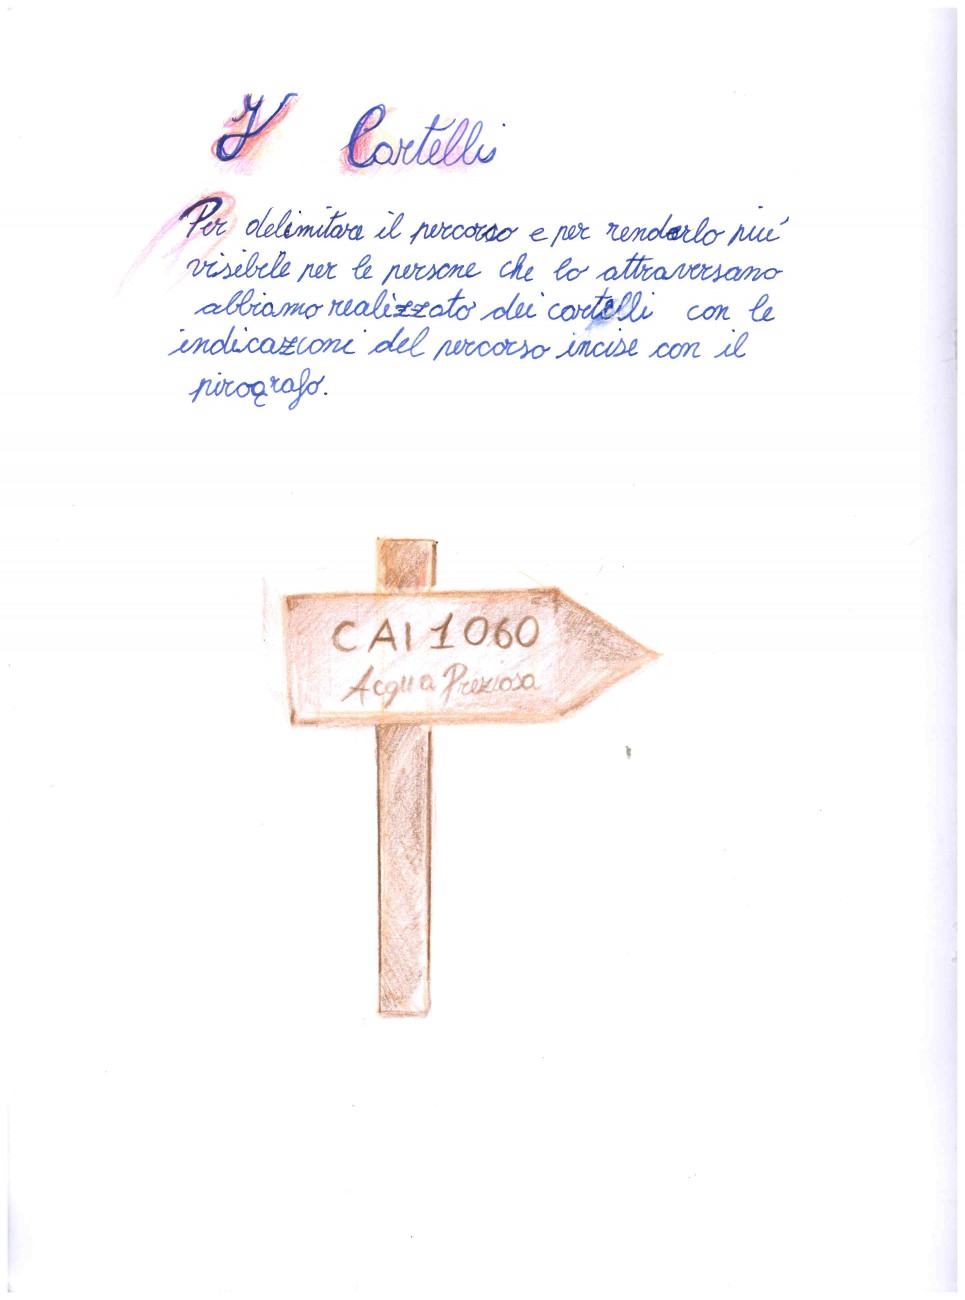 I Cartelli
Per delimitare il percorso e per renderlo piu'
visibile per le persone che lo attraversano
abbiamo realizzato dei cartelli con le
indicazioni del percorso incise con il
pirografo.
CAI 1060
Acqua Preziosa